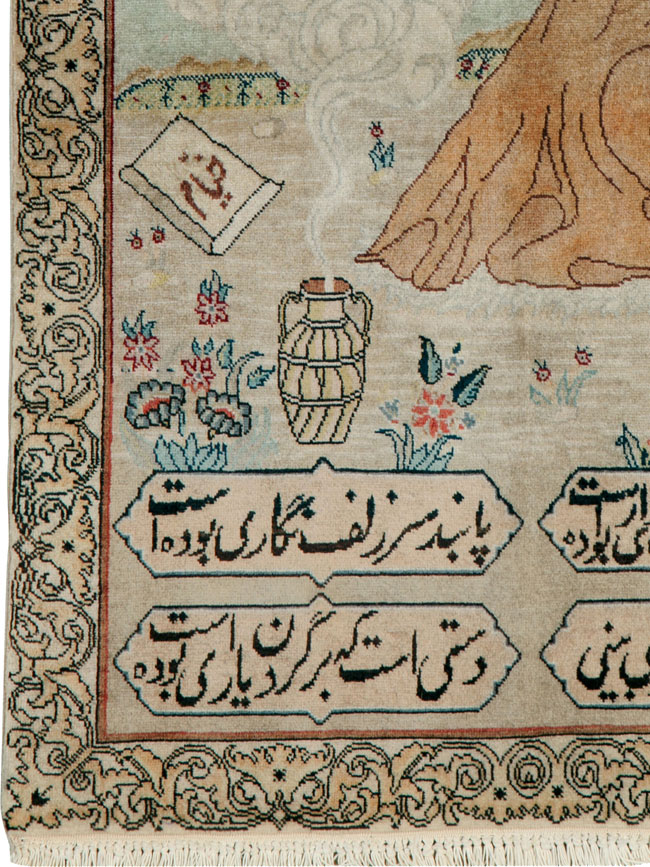 خیام
بوده است
پابند سر زلف نگاری بوده است
بینی
دستی است که بر گردن یاری بوده است